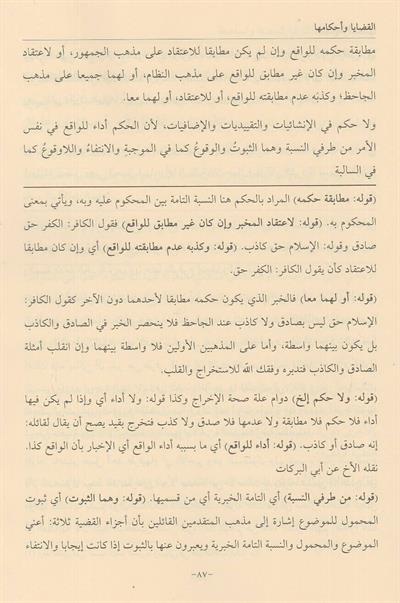 القضايا وأحكامها
مطابقة حكمه للواقع وإن لم يكن مطابقا للاعتقاد على مذهب الجمهور، أو لاعتقاد
المخبر وإن كان غير مطابق للواقع على مذهب النظام، أو لهما جميعا على مذهب
الجاحظ؛ وكذبَه عدم مطابقته للواقع، أو للاعتقاد، أو لهما معا.
ولا حكم في الإنشائيات والتقييديات والإضافيات، لأن الحكم أداء للواقع في نفس
الأمر من طرفي النسبة وهما الثبوتُ والوقوعُ كما في الموجبةِ والانتفاءُ واللاوقوعُ كما
في السالبة
(قوله: مطابقة حكمه) المراد بالحكم هنا النسبة التامة بين المحكوم عليه وبه، ويأتي بمعنى
المحكوم به. (قوله: لاعتقاد المخبر وإن كان غير مطابق للواقع) فقول الكافر: الكفر حق
صادق وقوله: الإسلام حق كاذب. (قوله: وكذبه عدم مطابقته للواقع) أي وإن كان مطابقا
للاعتقاد كأن يقول الكافر: الكفر حق.
(قوله: أو لهما معا) فالخبر الذي يكون حكمه مطابقا لأحدهما دون الآخر كقول الكافر:
الإسلام حق ليس بصادق ولا كاذب عند الجاحظ فلا ينحصر الخبر في الصادق والكاذب
بل يكون بينهما واسطة، وأما على المذهبين الأولين فلا واسطة بينهما وإن انقلب أمثلة
الصادق والكاذب فتدبره وفقك الله للاستخراج والقلب.
(قوله: ولا حكم إلخ) دوام علة صحة الإخراج وكذا قوله: ولا أداء أي وإذا لم يكن فيها
أداء فلا حكم فلا مطابقة ولا عدمها فلا صدق ولا كذب فتخرج بقيد يصح أن يقال لقائله:
إنه صادق أو كاذب. (قوله: أداء للواقع) أي ما بسببه أداء الواقع أي الإخبار بأن الواقع كذا.
نقله الآخ عن أبي البركات
(قوله: من طرفي النسبة) أي التامة الخبرية أي من قسميها. (قوله: وهما الثبوت) أي ثبوت
المحمول للموضوع إشارة إلى مذهب المتقدمين القائلين بأن أجزاء القضية ثلاثة: أعني
الموضوع والمحمول والنسبة التامة الخبرية ويعبرون عنها بالثبوت إذا كانت إيجابا والانتفاء
-٨٧-